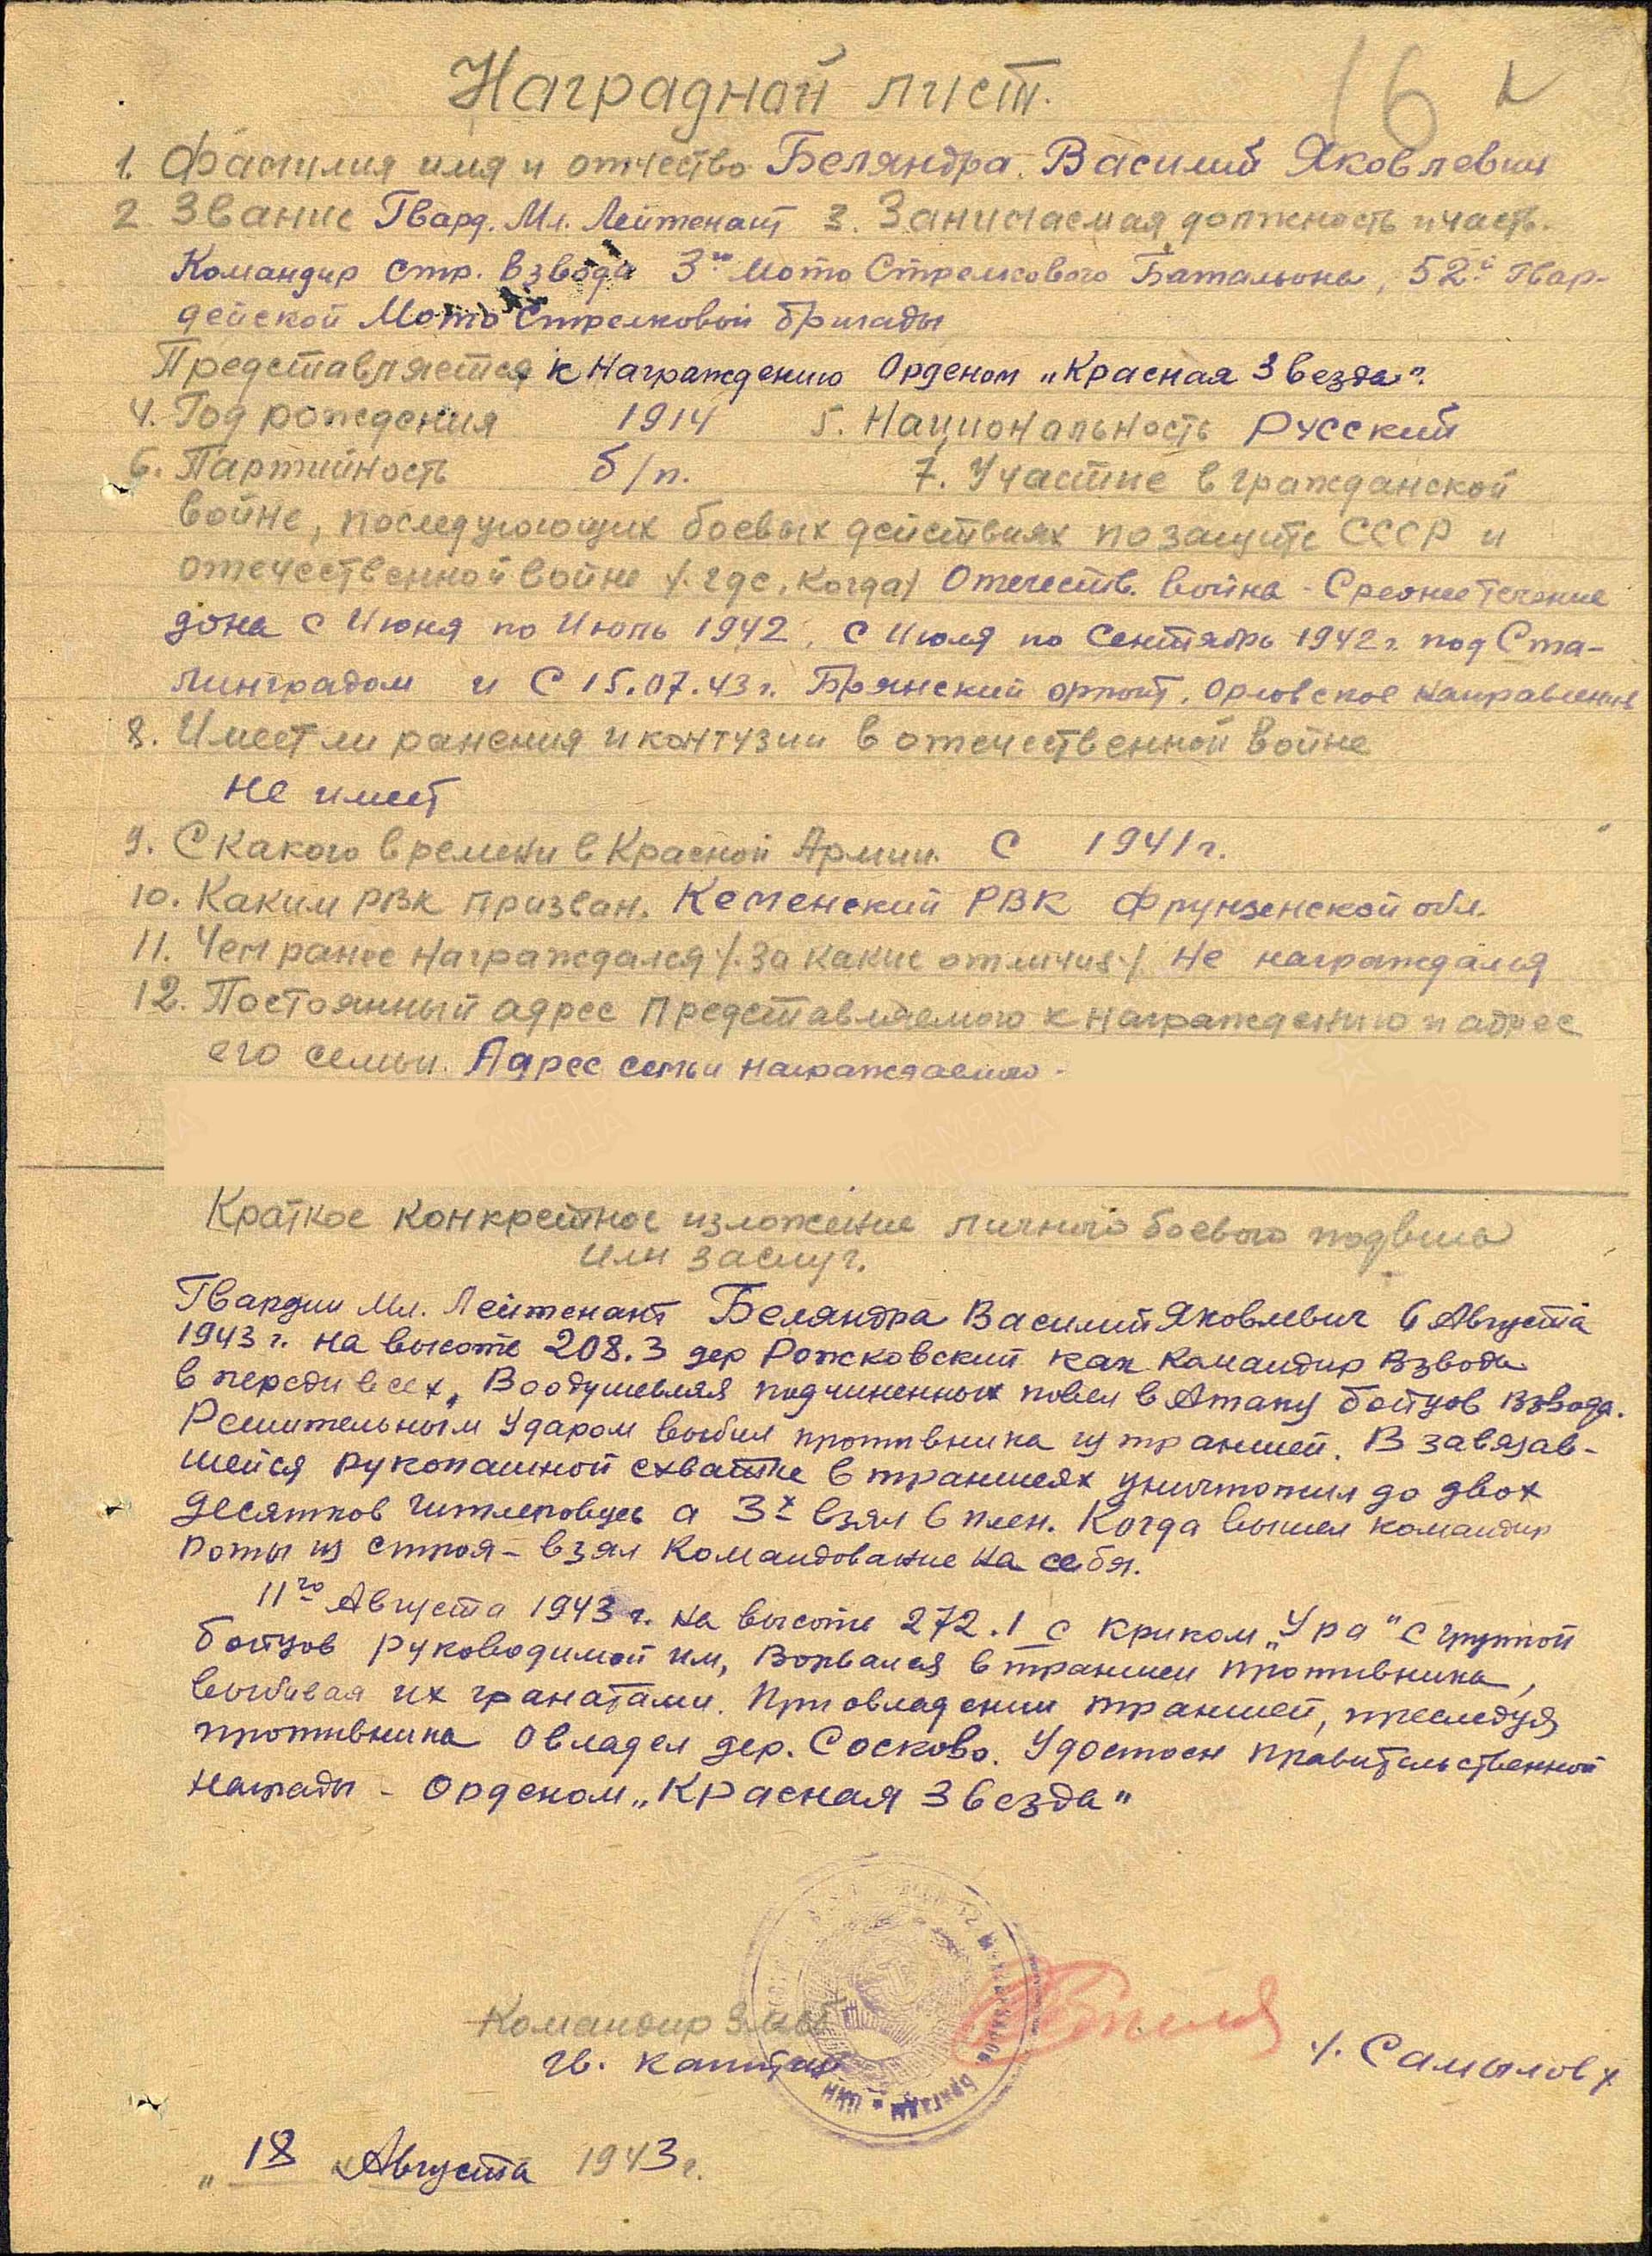 16
Наградной лист.
1. Фамилия имя и отчество Беляндра Василий Яковлевич
2 Звание Гвард. Мл. Лейтенант 3. Занимаемая должность и часть.
Командир стр. взвода 3го Мото Стрелкового Батальона, 52й Гвар-
дейской Мото Стрелковой бригады
Представляется к Награждению Орденом „Красная Звезда".
4. Год рождения 1914 5. Национальность Русский
6. Партийность б/п. 7. Участие в гражданской
войне, последующих боевых действиях по защите СССР и
отечественной войне /. где, когда / Отечеств. война - Среднее течение
дона с Июня по Июль 1942, с Июля по Сентябрь 1942 г. под Ста-
линградом и С 15.07.43 г. Брянский фронт, Орловское направление
8. Имеет ли ранения и контузии в отечественной войне
не имеет
9. С какого времени в Красной Армии. С 1941 г.
10. Каким РВК призван. Кеменский РВК Фрунзенской обл.
11. Чем ранее награждался /. за какие отличия ./ Не награждался
12. Постоянный адрес представляемого к награждению и адрес
его семьи. Адрес семьи награждаемого -
ПАМЯТЬ НАРОДА
Краткое конкретное изложение личного боевого подвига
или заслуг.
Гвардии Мл. Лейтенант Беляндра Василий Яковлевич 6 Августа
1943 г. на высоте 208.3 дер Рожковский как командир взвода
в переди всех, Воодушевляя подчиненных повел в Атаку бойцов взвода.
Решительным Ударом выбил противника из траншей. В завязав-
шейся рукопашной схватке в траншеях уничтожил до двох
десятков гитлеровцев а 3х взял в плен. Когда вышел командир
роты из строя - взял командование на себя.
11го Августа 1943 г. на высоте 272.1 с криком „Ура" с группой
бойцов руководимой им, Ворвался в траншеи противника,
выбивая их гранатами. При овладении траншей, преследуя
противника овладел дер. Сосково. Удостоен правительственной
награды - Орденом „Красная Звезда"
Командир 3 мсб
гв. капитан /. Самылов /.
бригады
„ 18 " Августа 1943 г.